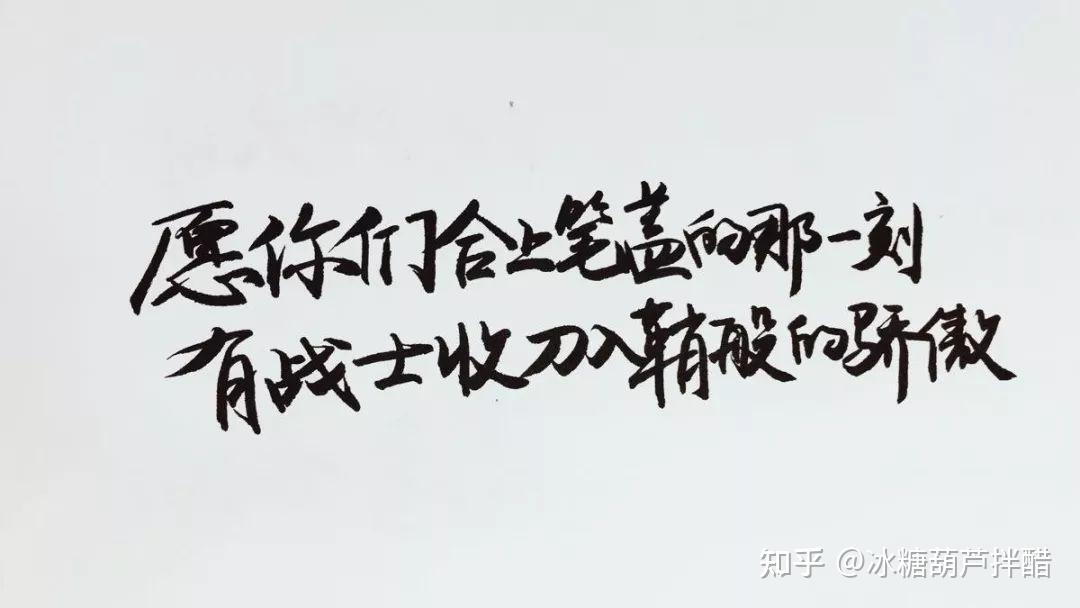 愿你们合上笔盖的那一刻
有战士收刀入鞘般的骄傲
知乎 @冰糖葫芦拌醋